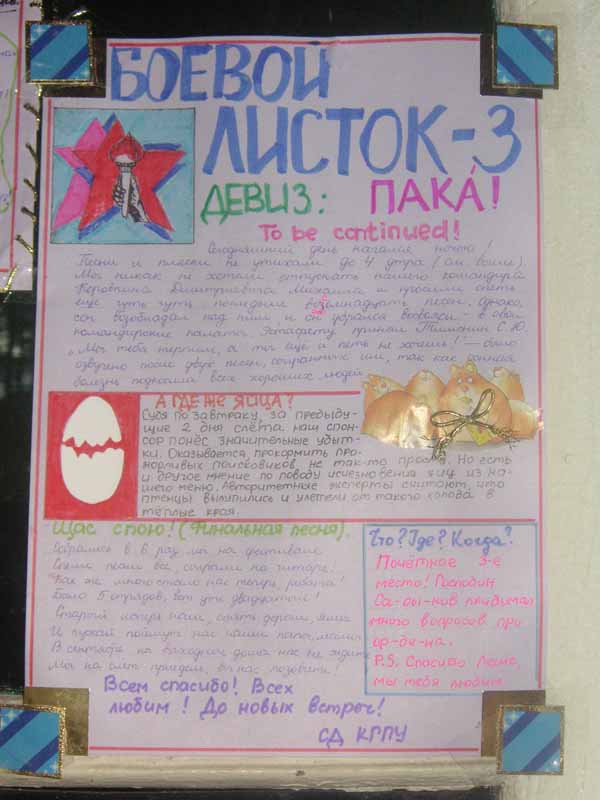 БОЕВОЙ
ЛИСТОК-3
ДЕВИЗ: ПАКА́!
To be continued!
Сегодняшний день начался ночью!
Песни и пляски не утихали до 4 утра
Мы никак не хотели отпускать нашего командира
Дмитриевича Михаила и просили спеть
ещё чуть чуть, последние восемнадцать песен, однако,
сон возобладал над ним и он убрался восвояси - в свои
командирские палаты. Эстафету принял С.Ю.
„Мы тебя терпим, а ты ещё и петь не хочешь!" - было
озвучено после двух песен, им, так как
болезнь подкосила всех хороших людей
А ГДЕ ЖЕ ЯЙЦА?
Судя по завтраку, за предыду-
щие 2 дня слёта наш спон-
сор понёс значительные убыт-
ки. Оказывается, прокормить про-
жорливых поисковиков не так-то просто. Но есть
и другое мнение по поводу исчезновения яиц из на-
шего меню. Авторитетные эксперты считают, что
птенцы вылупились и улетели от такого холода в
тёплые края.
Щас спою! (Финальная песня).
Собрались в 6 раз мы на фестивале
Спели песни все, сыграли на гитаре!
Как же много стало нас теперь, ребята!
Было 5 отрядов, вот уж двадцатый!
Старый лагерь наш, опять дороги, яма
И пускай поймут нас наши папы, мамы
В сентябре на выходных дома нас не ждите
Мы на слёт приедем, вы нас позовите!
Что? Где? Когда?
Почётное 3-е
место! Господин
Са-ры-ков придумал
много вопросов про
ор-де-на.
P.S. Спасибо Лёша,
мы тебя любим.
Всем спасибо! Всех
любим! До новых встреч!
СД КГПУ